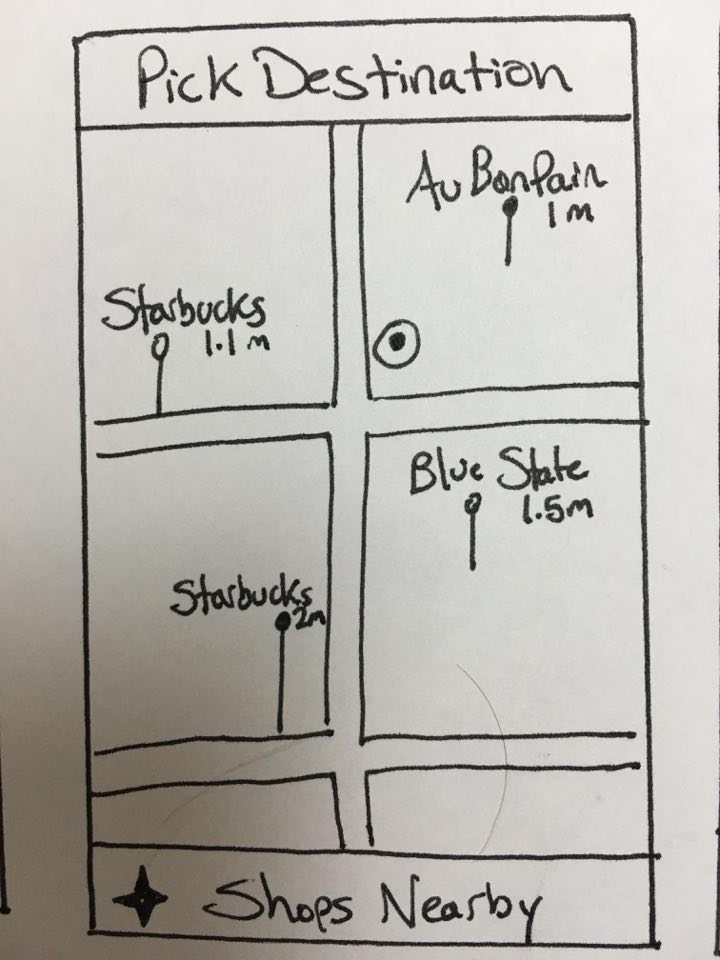 Pick Destination
Au Bon Pain
1 m
Starbucks
1.1 m
Blue State
1.5m
Starbucks
2m
Shops Nearby